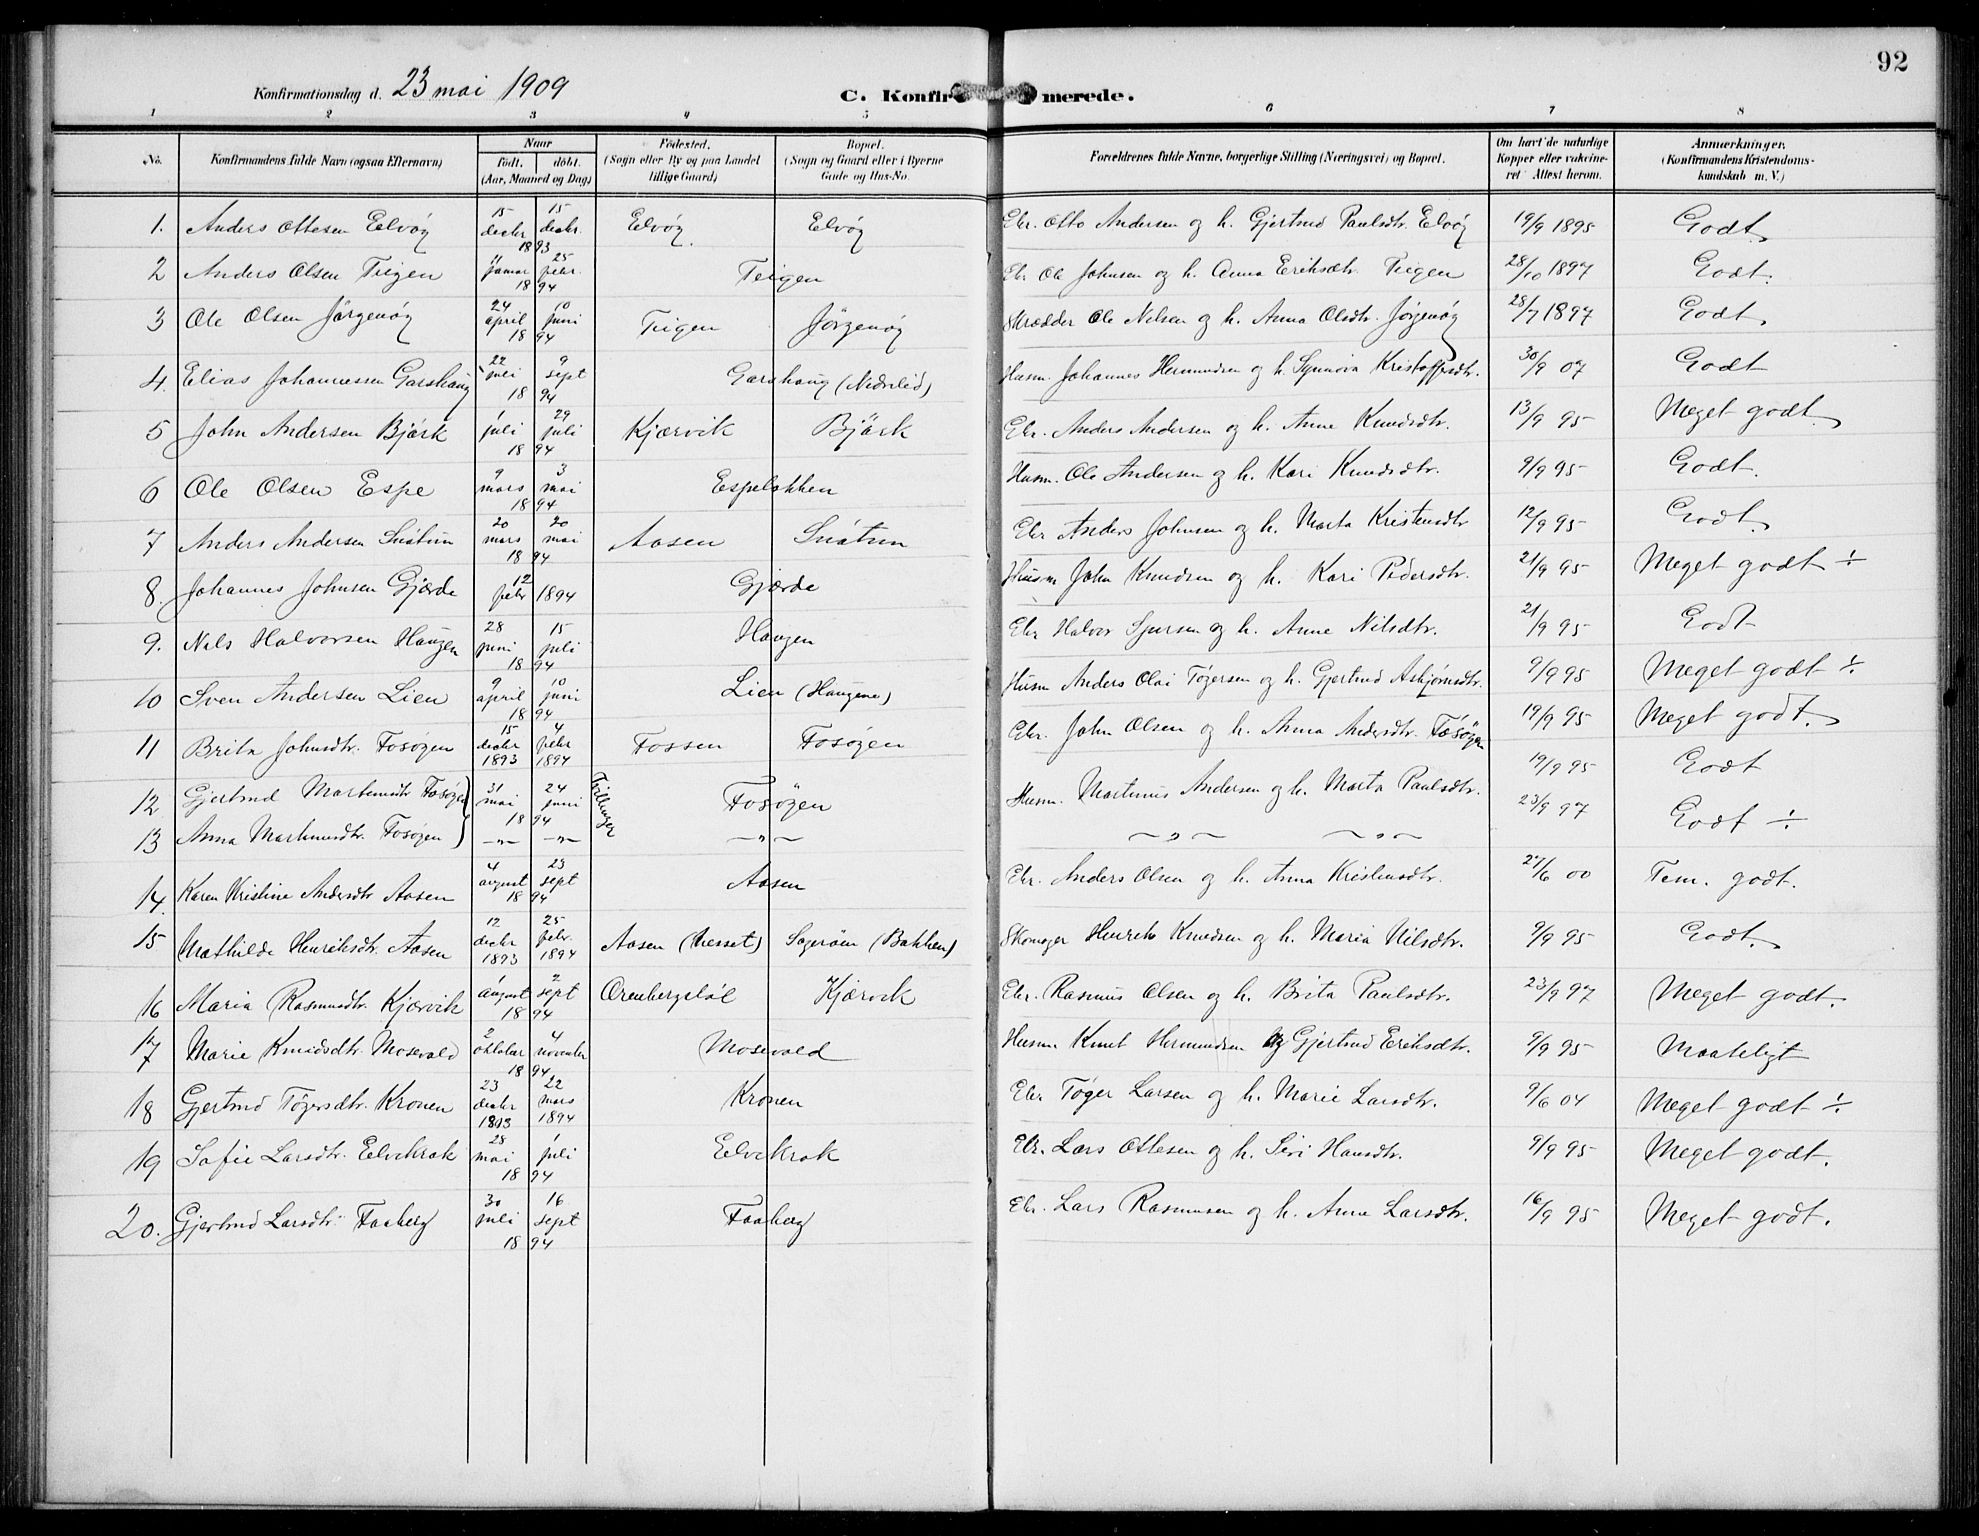 92
Konfirmationsdag d. 23 mai 1909
C. Konfirmerede.
1 2 3 4 5 6 7 8
No. | Konfirmandens fulde Navn (ogsaa Efternavn) | Naar født. døbt. (Aar, Maaned og Dag) | Fødested. (Sogn eller By og paa Landet tillige Gaard) | Bopæl. (Sogn og Gaard eller i Byerne Gade og Hus-No. | Forældrenes fulde Navne, borgerlige Stilling (Næringsvei) og Bopæl. | Om havt de naturlige Kopper eller vakcineret Attest herom. | Anmærkninger. (Konfirmandens Kristendomskundskab m. V.)
1. Anders Ottesen Eelvøy | 15 decbr 15 decbr. 1893 | Eelvøy | Eelvøy | Ebr. Otto Andersen og h. Gjertrud Paulsdtr. Eelvøy | 19/9 1895 | Godt.
2 Anders Olsen Teigen | 11 januar 25 febr. 1894 | Teigen | Ebr. Ole Johnsen og h. Anna Eriksdtr. Teigen | 28/10 1897 | Godt.
3 Ole Olsen Jørgenøy | 24 april 10 juni 1894 | Teigen | Jørgenøy | Skrædder Ole Nilsen og h. Anna Olsdtr. Jørgenøy | 28/7 1897 | Godt.
4. Elias Johannessen Garshaug | 22 juli 9 sept 1894 | Garshaug (Nedrelid) | Husm. Johannes Hermundsen og h. Synnøva Kristoffersdtr. | 30/9 07 | Godt
5 John Andersen Bjørk | 1 juli 29 juli 1894 | Kjærvik | Bjørk | Ebr. Anders Andersen og h. Anne Knudsdtr. | 13/9 95 | Meget godt.
6 Ole Olsen Espe | 9 mars 3 mai 1894 | Espeløkken | Husm. Ole Andersen og h. Kari Knudsdtr. | 9/9 95 | Godt.
7 Anders Andersen Snøtun | 20 mars 20 mai 1894 | Aasen | Snøtun | Ebr Anders Johnsen og h. Marta Kristensdtr | 12/9 95 | Godt.
8. Johannes Johnsen Gjærde | 12 febr 1894 | Gjærde | Husm John Knudsen og h. Kari Pedersdtr. | 21/9 95 | Meget godt ÷
9. Nils Halvorsen Haugen | 28 juni 15 juli 1894 | Haugen | Ebr Halvor Sjursen og h. Anne Nilsdtr. | 21/9 95 | Godt
10 Sven Andersen Lien | 9 april 10 juni 1894 | Lien (Haugene) | Husm Anders Olai Tøgersen og h. Gjertrud Asbjørnsdtr. | 9/9 95 | Meget godt ÷
11 Brita Johnsdtr. Fosøyen | 15 decbr 1893 4 febr 1894 | Fossen | Fosøyen | Ebr. John Olsen og h. Anna Andersdtr. Fosøyen | 19/9 95 | Meget godt.
12 Gjertrud Martinusdtr Fosøyen | 31 mai 24 juni 1894 | Tvillinger | Fosøyen | Husm. Martinus Andersen og h. Marta Paulsdtr. | 19/9 95 | Godt
13 Anna Martinusdtr. Fosøyen | —"— —"— | —"— | —"— —"— | 23/9 97 | Godt ÷
14. Karen Kristine Andersdtr Aasen | 4 august 23 sept 1894 | Aasen | Ebr. Anders Olsen og h. Anna Kristensdtr. | 27/6 00 | Tem. godt.
15 Mathilde Henriksdtr. Aasen | 12 decbr 1893 25 febr. 1894 | Aasen (Nesset) | Sogerøen (Bakken) | Skomager Henrik Knudsen og h. Maria Nilsdtr. | 9/9 95 | Godt.
16 Maria Rasmusdtr. Kjærvik | 1 august 2 sept 1894 | Ørenbergstøl | Kjærvik | Ebr. Rasmus Olsen og h. Brita Paulsdtr. | 23/9 97 | Meget godt.
17 Marie Knudsdtr. Mosevold | 2 oktober 4 november 1894 | Mosevold | Husm Knut Hermundsen og Gjertrud Eriksdtr. | 9/9 95 | Maateligt
18 Gjertrud Tøgersdtr. Kronen | 23 decbr 1893 22 mars 1894 | Kronen | Ebr Tøger Larsen og h. Marie Larsdtr. | 9/6 04 | Meget godt ÷
19 Sofie Larsdtr. Eelvekrok | 28 mai 1 juli 1894 | Eelvekrok | Ebr. Lars Ottesen og h. Siri Hansdtr. | 9/9 95 | Meget godt.
20. Gjertrud Larsdtr. Faaberg | 30 juli 16 sept 1894 | Faaberg | Ebr. Lars Rasmusen og h. Anne Larsdtr. | 16/9 95 | Meget godt.